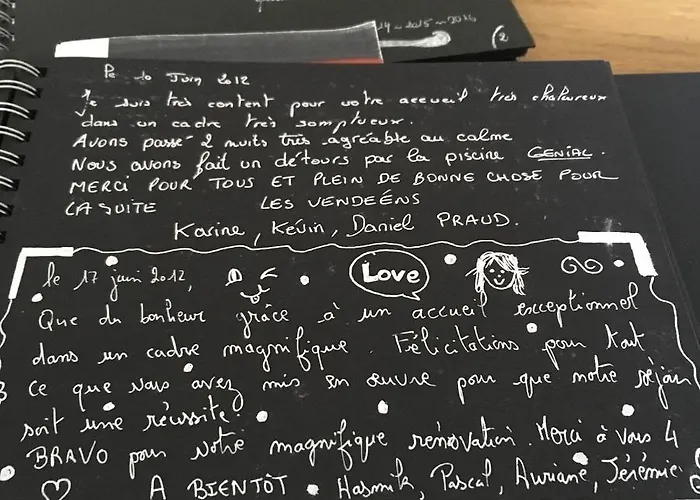 14-2015-2016
(2
Le 10 Juin 2012
Je suis très content pour votre accueil très chaleureux
dans un cadre très somptueux.
Avons passé 2 nuits très agréable au calme
Nous avons fait un détours par la piscine GENIAL.
MERCI POUR TOUS ET PLEIN DE BONNE CHOSE POUR
LA SUITE LES VENDEÉNS
Karine, Kévin, Daniel PRAUD.
le 17 juin 2012,
Love
Que du bonheur grâce à un accueil exceptionnel
dans un cadre magnifique. Félicitations pour tout
ce que vous avez mis en œuvre pour que notre séjour
soit une réussite!
BRAVO pour votre magnifique rénovation. Merci à vous 4
A BIENTÔT. Hasmik, Pascal, Auriane, Jérémie